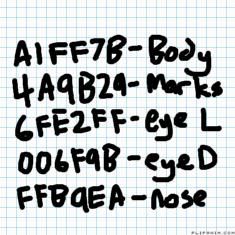 A1FF7B-Body
4A9B29-Marks
6FE2FF-eye L
006F9B-eye D
FFB9EA-nose
FLIPANIM.COM